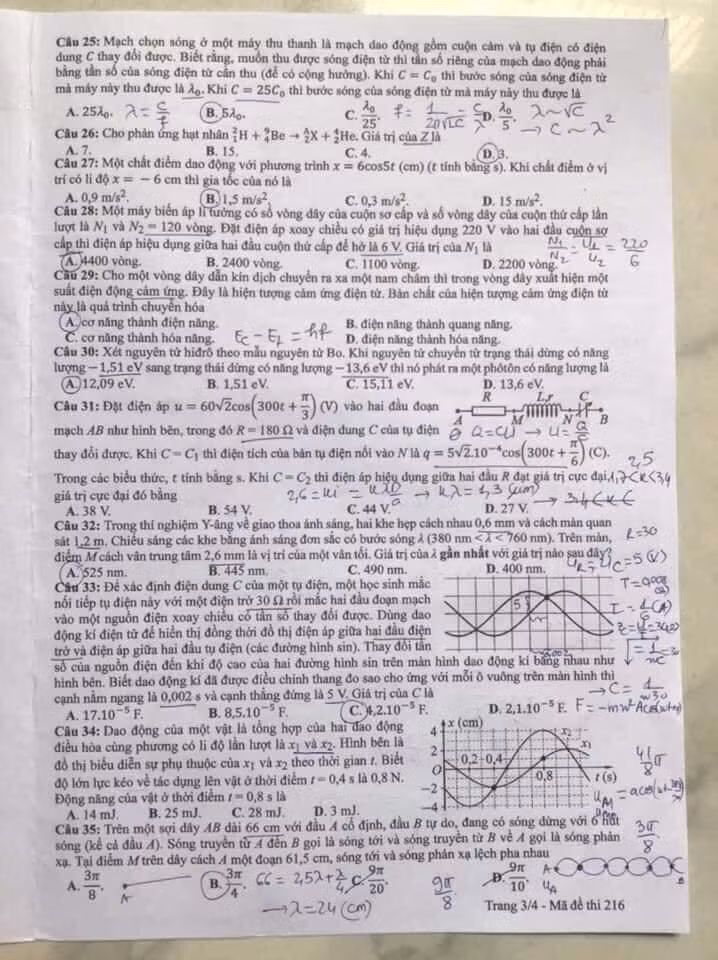 Câu 25: Mạch chọn sóng ở một máy thu thanh là mạch dao động gồm cuộn cảm và tụ điện có điện
dung C thay đổi được. Biết rằng, muốn thu được sóng điện từ thì tần số riêng của mạch dao động phải
bằng tần số của sóng điện từ cần thu (để có cộng hưởng). Khi C = C₀ thì bước sóng của sóng điện từ
mà máy này thu được là λ₀. Khi C = 25C₀ thì bước sóng của sóng điện từ mà máy này thu được là
A. 25λ₀. λ = c/f B. 5λ₀. C. λ₀/25. f = 1/2π√LC = c/λ D. λ₀/5. λ ~ √C
→ C ~ λ²
Câu 26: Cho phản ứng hạt nhân ²₁H + ⁹₄Be → ᴬ_Z X + ⁴₂He. Giá trị của Z là
A. 7. B. 15. C. 4. D. 3.
Câu 27: Một chất điểm dao động với phương trình x = 6cos5t (cm) (t tính bằng s). Khi chất điểm ở vị
trí có li độ x = − 6 cm thì gia tốc của nó là
A. 0,9 m/s². B. 1,5 m/s². C. 0,3 m/s². D. 15 m/s².
Câu 28: Một máy biến áp lí tưởng có số vòng dây của cuộn sơ cấp và số vòng dây của cuộn thứ cấp lần
lượt là N₁ và N₂ = 120 vòng. Đặt điện áp xoay chiều có giá trị hiệu dụng 220 V vào hai đầu cuộn sơ
cấp thì điện áp hiệu dụng giữa hai đầu cuộn thứ cấp để hở là 6 V. Giá trị của N₁ là
A. 4400 vòng. B. 2400 vòng. C. 1100 vòng. D. 2200 vòng. N₁/N₂ = U₁/U₂ = 220/6
Câu 29: Cho một vòng dây dẫn kín dịch chuyển ra xa một nam châm thì trong vòng dây xuất hiện một
suất điện động cảm ứng. Đây là hiện tượng cảm ứng điện từ. Bản chất của hiện tượng cảm ứng điện từ
này là quá trình chuyển hóa
A. cơ năng thành điện năng. B. điện năng thành quang năng.
C. cơ năng thành hóa năng. D. điện năng thành hóa năng.
Câu 30: Xét nguyên tử hiđrô theo mẫu nguyên tử Bo. Khi nguyên tử chuyển từ trạng thái dừng có năng
lượng − 1,51 eV sang trạng thái dừng có năng lượng −13,6 eV thì nó phát ra một phôtôn có năng lượng là
A. 12,09 eV. B. 1,51 eV. C. 15,11 eV. D. 13,6 eV.
Câu 31: Đặt điện áp u = 60√2cos(300t + π/3) (V) vào hai đầu đoạn
R L,r C
A M N B
mạch AB như hình bên, trong đó R = 180 Ω và điện dung C của tụ điện
thay đổi được. Khi C = C₁ thì điện tích của bản tụ điện nối vào N là q = 5√2.10⁻⁴cos(300t + π/6) (C).
Trong các biểu thức, t tính bằng s. Khi C = C₂ thì điện áp hiệu dụng giữa hai đầu R đạt giá trị cực đại,
giá trị cực đại đó bằng
A. 38 V. B. 54 V. C. 44 V. D. 27 V.
Câu 32: Trong thí nghiệm Y-âng về giao thoa ánh sáng, hai khe hẹp cách nhau 0,6 mm và cách màn quan
sát 1,2 m. Chiếu sáng các khe bằng ánh sáng đơn sắc có bước sóng λ (380 nm < λ < 760 nm). Trên màn,
điểm M cách vân trung tâm 2,6 mm là vị trí của một vân tối. Giá trị của λ gần nhất với giá trị nào sau đây?
A. 525 nm. B. 445 nm. C. 490 nm. D. 400 nm.
Câu 33: Để xác định điện dung C của một tụ điện, một học sinh mắc
nối tiếp tụ điện này với một điện trở 30 Ω rồi mắc hai đầu đoạn mạch
vào một nguồn điện xoay chiều có tần số thay đổi được. Dùng dao
động kí điện tử để hiển thị đồng thời đồ thị điện áp giữa hai đầu điện
trở và điện áp giữa hai đầu tụ điện (các đường hình sin). Thay đổi tần
số của nguồn điện đến khi độ cao của hai đường hình sin trên màn hình dao động kí bằng nhau như
hình bên. Biết dao động kí đã được điều chỉnh thang đo sao cho ứng với mỗi ô vuông trên màn hình thì
cạnh nằm ngang là 0,002 s và cạnh thẳng đứng là 5 V. Giá trị của C là
A. 17.10⁻⁵ F. B. 8,5.10⁻⁵ F. C. 4,2.10⁻⁵ F. D. 2,1.10⁻⁵ F.
Câu 34: Dao động của một vật là tổng hợp của hai dao động
điều hòa cùng phương có li độ lần lượt là x₁ và x₂. Hình bên là
đồ thị biểu diễn sự phụ thuộc của x₁ và x₂ theo thời gian t. Biết
độ lớn lực kéo về tác dụng lên vật ở thời điểm t = 0,4 s là 0,8 N.
Động năng của vật ở thời điểm t = 0,8 s là
A. 14 mJ. B. 25 mJ. C. 28 mJ. D. 3 mJ.
x (cm)
4
2
0
−2
−4
0,2 0,4
0,8
x₂
x₁
t (s)
Câu 35: Trên một sợi dây AB dài 66 cm với đầu A cố định, đầu B tự do, đang có sóng dừng với 6 nút
sóng (kể cả đầu A). Sóng truyền từ A đến B gọi là sóng tới và sóng truyền từ B về A gọi là sóng phản
xạ. Tại điểm M trên dây cách A một đoạn 61,5 cm, sóng tới và sóng phản xạ lệch pha nhau
A. 3π/8. B. 3π/4. C. 9π/20. D. 9π/10.
66 = 2,5λ + λ/4
→ λ = 24 (cm)
9π/8
Trang 3/4 - Mã đề thi 216